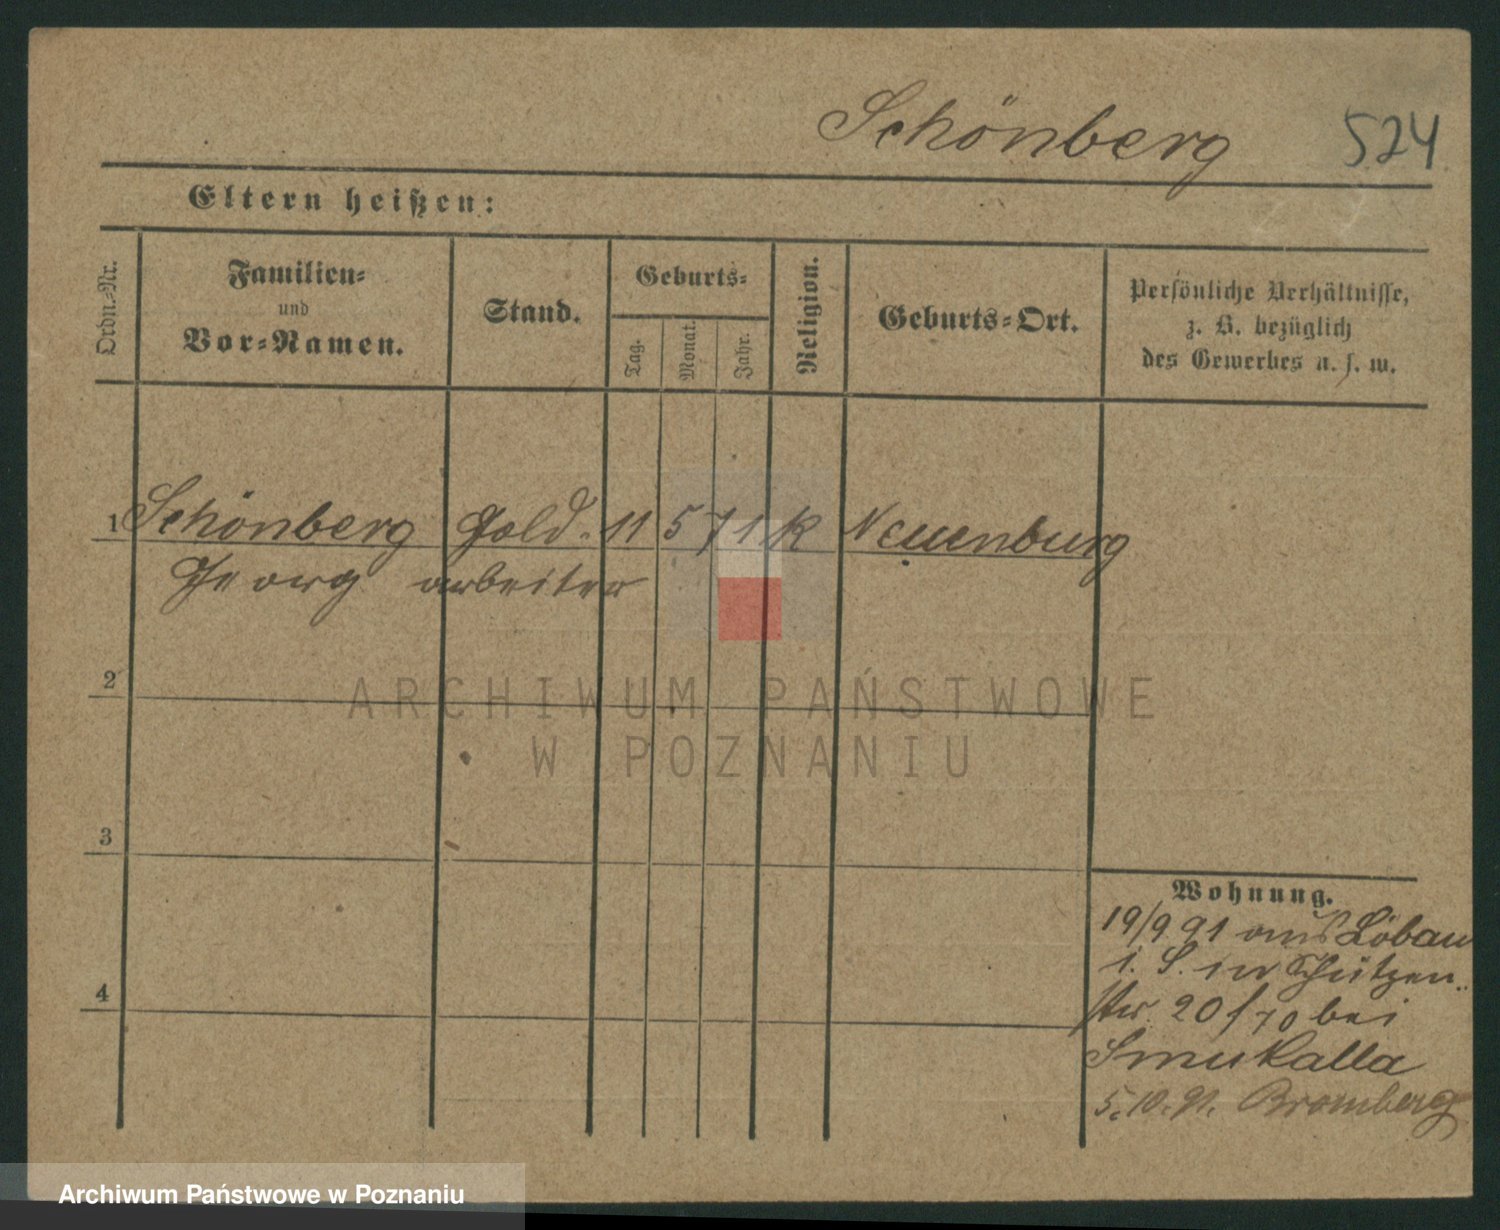 Schönberg 524
Eltern heißen:
Ordn.-Nr.
Familien-
und
Vor-Namen.
Stand.
Geburts-
Tag.
Monat.
Jahr.
Religion.
Geburts-Ort.
Persönliche Verhältnisse,
z. B. bezüglich
des Gewerbes u. s. w.
1 Schönberg Gold- 11 5 71 k Neuenburg
Georg arbeiter
2
3
4
Wohnung.
19/9 91 aus Löbau
i. S. in Schützen-
str 20 / 70 bei
Smukalla
5.10.91. Bromberg
ARCHIWUM PAŃSTWOWE
W POZNANIU
Archiwum Państwowe w Poznaniu